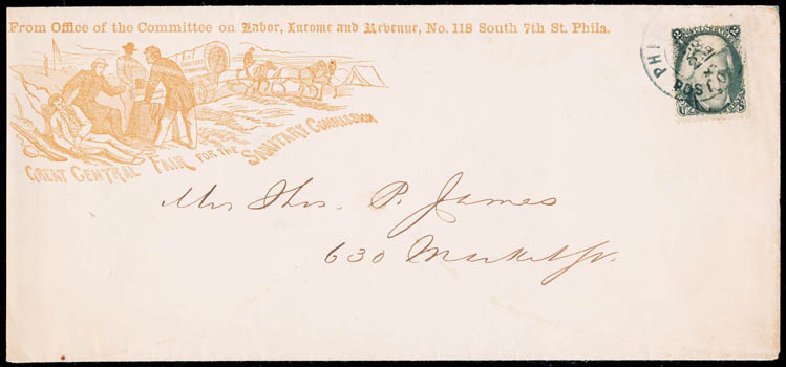 From Office of the Committee on Labor, Income and Revenue, No. 118 South 7th St. Phila.
GREAT CENTRAL FAIR FOR THE SANITARY COMMISSION
PHI
POST
2 2
Mrs Thos. P. James
630 Market St.